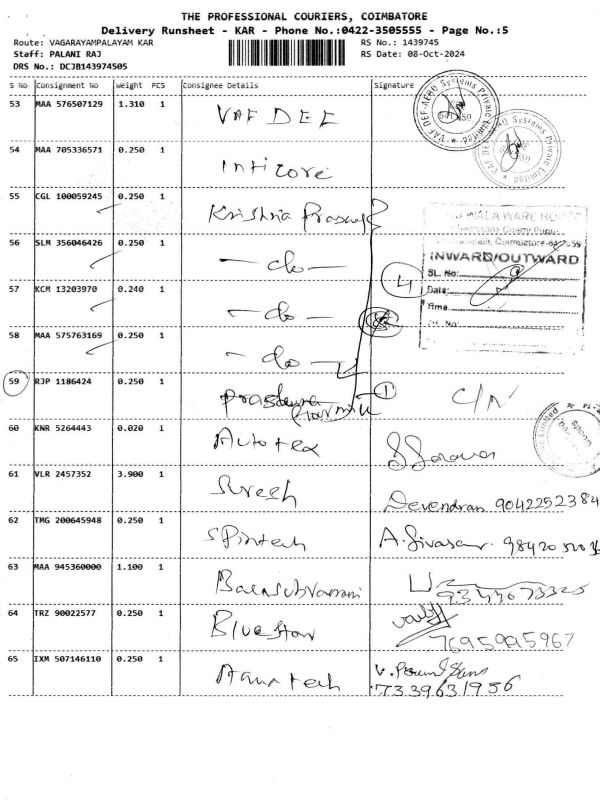 THE PROFESSIONAL COURIERS, COIMBATORE
Delivery Runsheet - KAR - Phone No.:0422-3505555 - Page No.:5
Route: VAGARAYAMPALAYAM KAR RS No.: 1439745
Staff: PALANI RAJ RS Date: 08-Oct-2024
DRS No.: DCJB143974505
S No Consignment No Weight PCS Consignee Details Signature
53 MAA 576507129 1.310 1 VAF DEF
VAF DEF-AERO Systems Private Limited
VAF DEF-AERO Systems Private Limited
54 MAA 705336571 0.250 1 Inticore
55 CGL 100059245 0.250 1 Krishna
WALA WARE HOUSE
56 SLM 356046426 0.250 1 -do-
INWARD/OUTWARD
SL. No:
57 KCM 13203970 0.240 1 -do- 4
Date:
Time
58 MAA 575763169 0.250 1 -do-
59 RJP 1186424 0.250 1 1 C/N
60 KNR 5264443 0.020 1 Autotex
61 VLR 2457352 3.900 1 Suresh Devendran 9042252384
62 TMG 200645948 0.250 1 Spintech A.
63 MAA 945360000 1.100 1
64 TRZ 90022577 0.250 1 Blue Star
7695995967
65 IXM 507146110 0.250 1 V.
7339631956